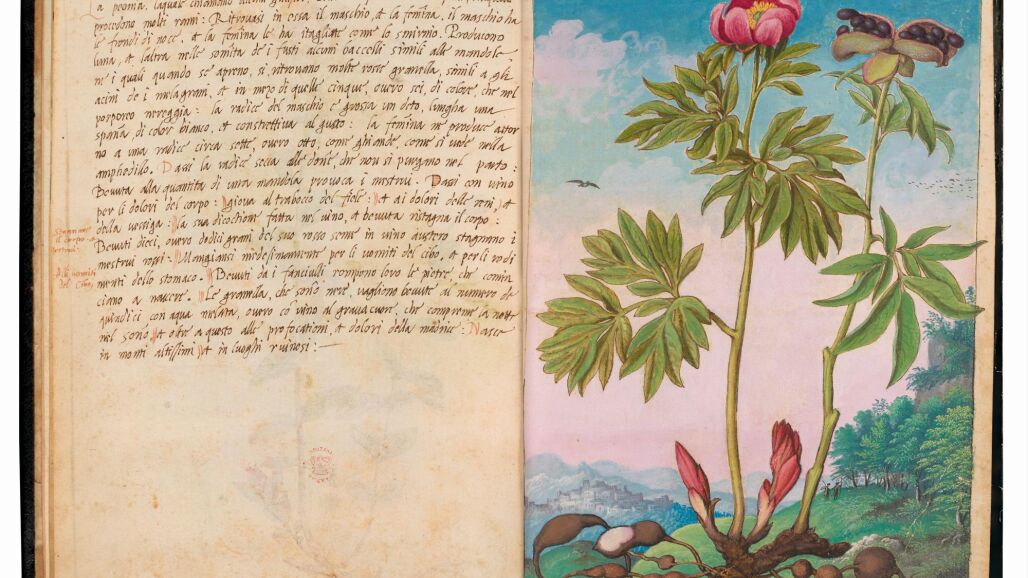 La peonia, laquale chiamano alcuni
procedono molti rami: Ritrovasi in essa il maschio, et la femina. il maschio ha
le frondi di noce, et la femina le ha itagliate come lo smirnio. Producono
luna, et laltra nelle somita de i fusti alcuni baccelli simili alle mandole
ne i quali quando se apreno, si ritrovano molte rosse granella, simili a gli
acini de i melagrani, et in mezo di quelle cinque, overo sei di colore, che nel
porporeo nereggia: la radice del maschio e grossa un deto, lungha una
spana di color bianco, et constrettiva al gusto: la femina ne produce attor
no a una radice circa sette, overo otto, come ghiande, come si vede nella
amphodillo. Dassi la radice secca alle done, che non si purgano nel parto:
Bevuta alla quantita di una mandola provoca i mestrui. Dassi con vino
per li dolori del corpo: giova al trabocco del fiele: et ai dolori delle reni, et
della vessiga: la sua dicottione fatta nel vino, et bevuta ristagna il corpo:
Bevuti dieci, overo dodici grani del suo rosso seme in vino austero stagnano i
mestrui rossi: Mangiansi medesimamente per li vomiti del cibo, et per li rodi
menti dello stomaco. Bevuti da i fanciulli rompono loro le pietre, che comin
ciano a nascere. Le granella, che sono nere, vagliono bevute al numero de
quindici con aqua melata, overo co vino al gravacuor, che compreme la notte
nel sonno, et oltre a questo alle profocationi, et dolori della madrice: Nasce
in monti altissimi et in luoghi ruinosi:
il corpo
del Cibo